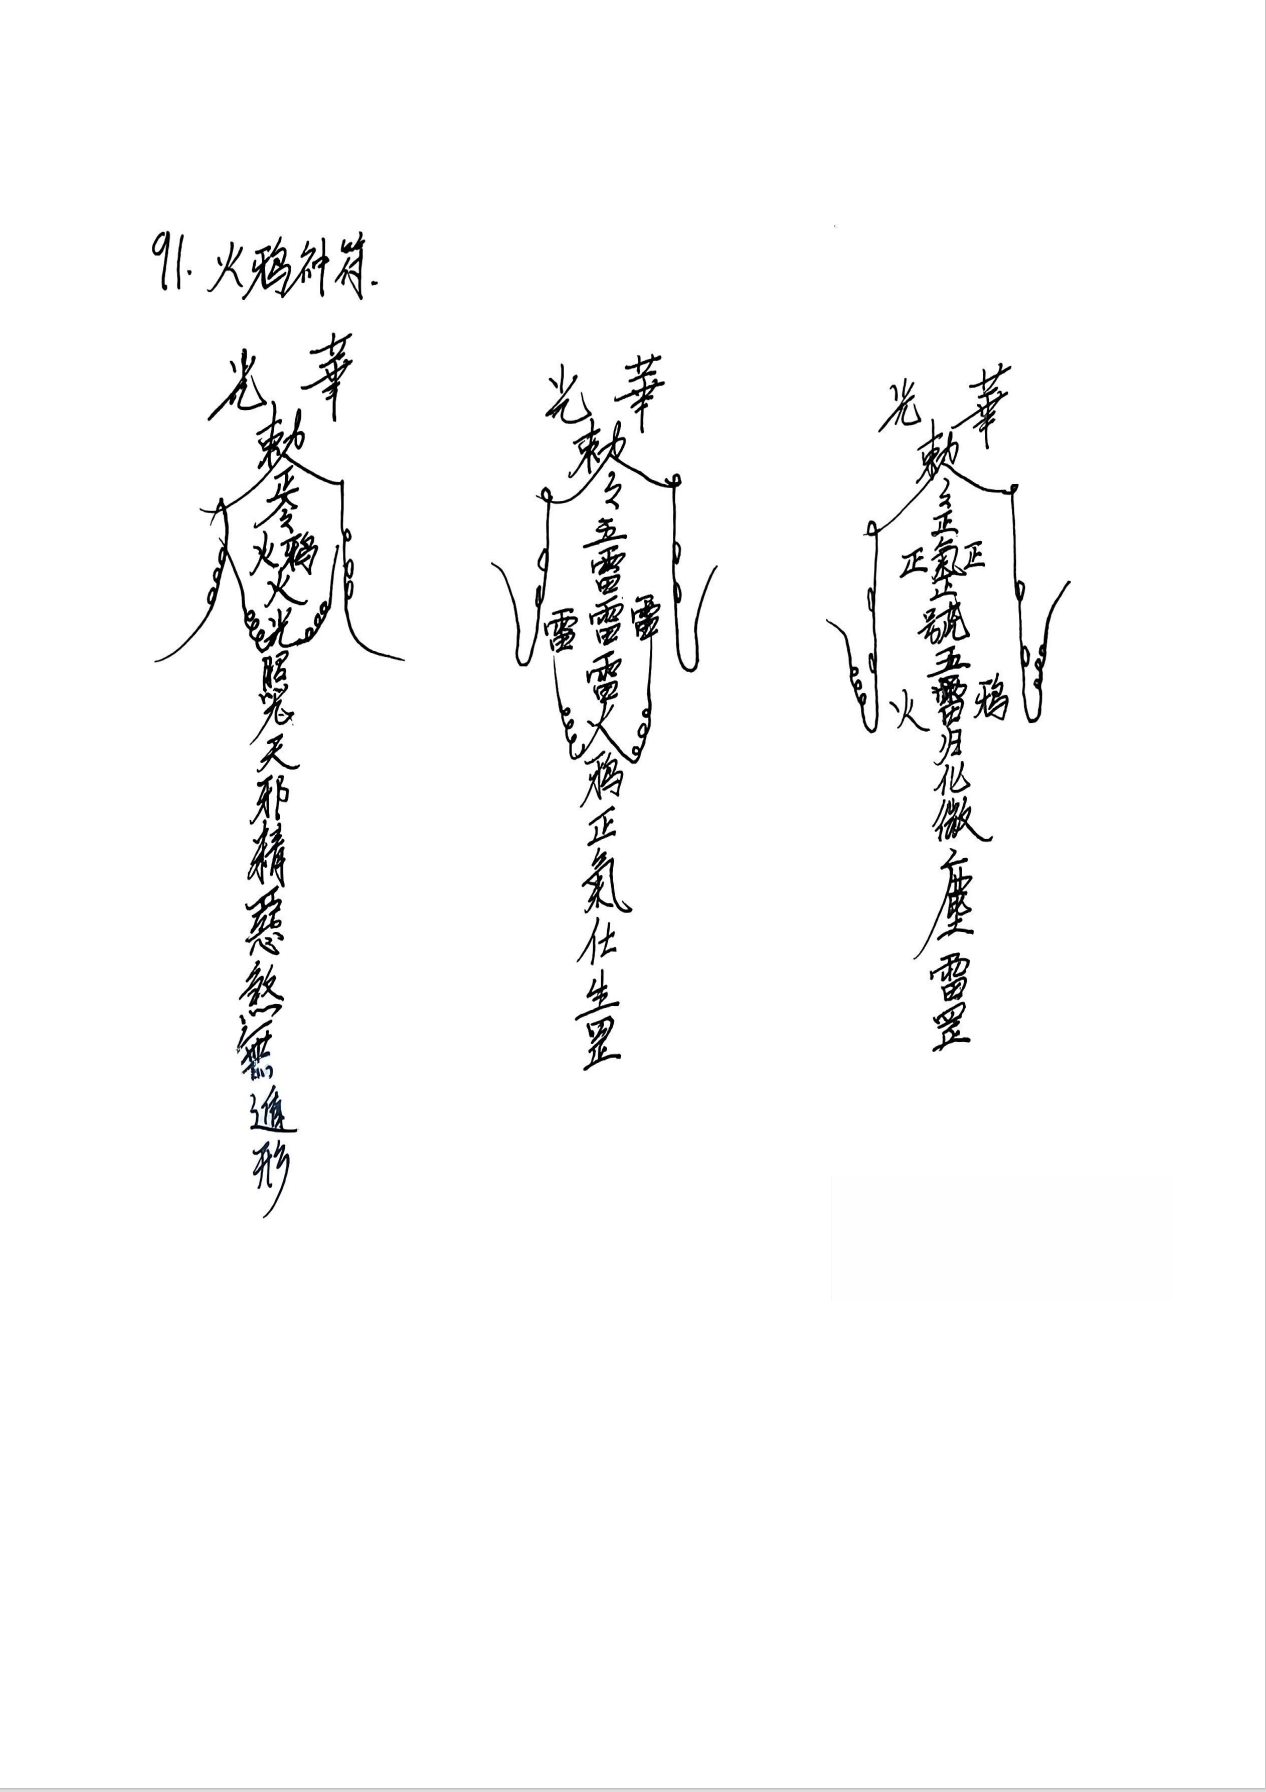 91. 火鸦神符.
光 華
勅
令
火鴉
火
光
照
天
邪
精
惡
煞
無
遁
形
光 華
勅
令
五
雷
雷 雷 雷
雷
火
鴉
正
氣
仕
生
罡
光 華
勅
令
正
正 氣 正
正
號
五
火 雷 鸦
归
化
微
塵
雷
罡